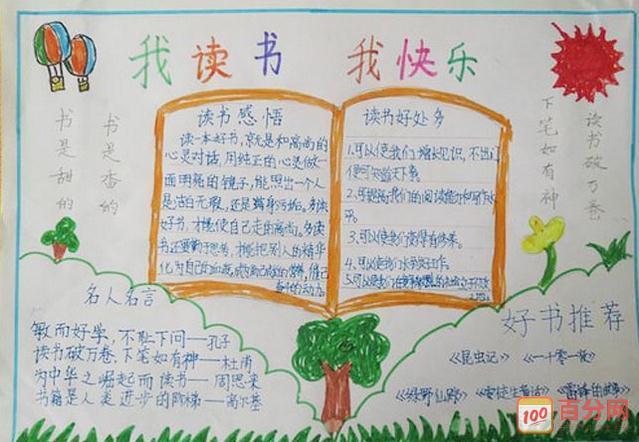 我读书 我快乐
书是香的
书是甜的
读书破万卷
下笔如有神
读书感悟
读一本好书，就是和高尚的
心灵对话，用纯正的心灵做一
面明亮的镜子，能照出一个人
是洁白无瑕，还是满身污垢。多读
好书，才能使自己走向高尚。多读
书还要勤于思考，才能把别人的精华
化为自己的血液，成为自己成的营养，催己
奋进的动力。
读书好处多
1.可以使我们增长见识，不出门
便可知道天下事。
2.可提高我们的阅读能力和写作水
平。
3.可以使我们变得有修养。
4.可以使我们
5.可以使我们
名人名言
敏而好学，不耻下问——孔子
读书破万卷，下笔如有神——杜甫
为中华之崛起而读书——周恩来
书籍是人类进步的阶梯——高尔基
好书推荐
《昆虫记》 《一千零一夜》
《绿野仙踪》 《安徒生童话》 《雷锋的故事》
100 百分网